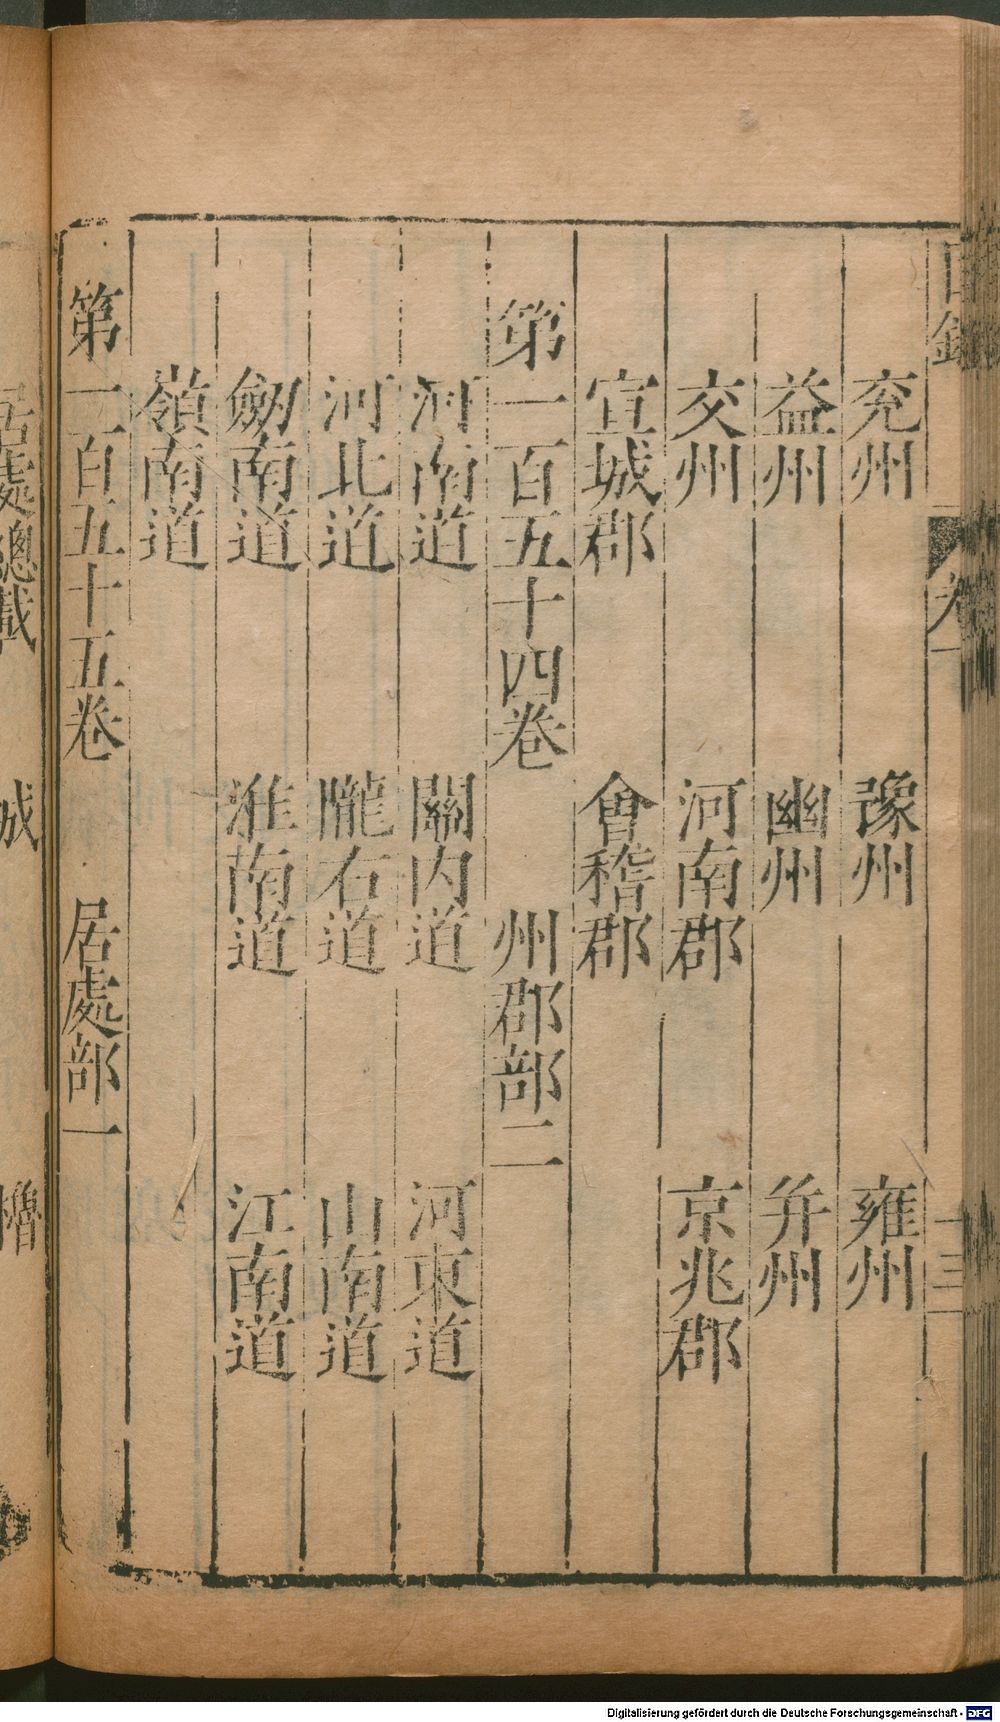 目錄 卷一 十三
兖州 豫州 雍州
益州 幽州 并州
交州 河南郡 京兆郡
宣城郡 會稽郡
第一百五十四卷 州郡部二
河南道 關內道 河東道
河北道 隴右道 山南道
劒南道 淮南道 江南道
嶺南道
第一百五十五卷 居處部一
居處總載 城 櫓
Digitalisierung gefördert durch die Deutsche Forschungsgemeinschaft - DFG